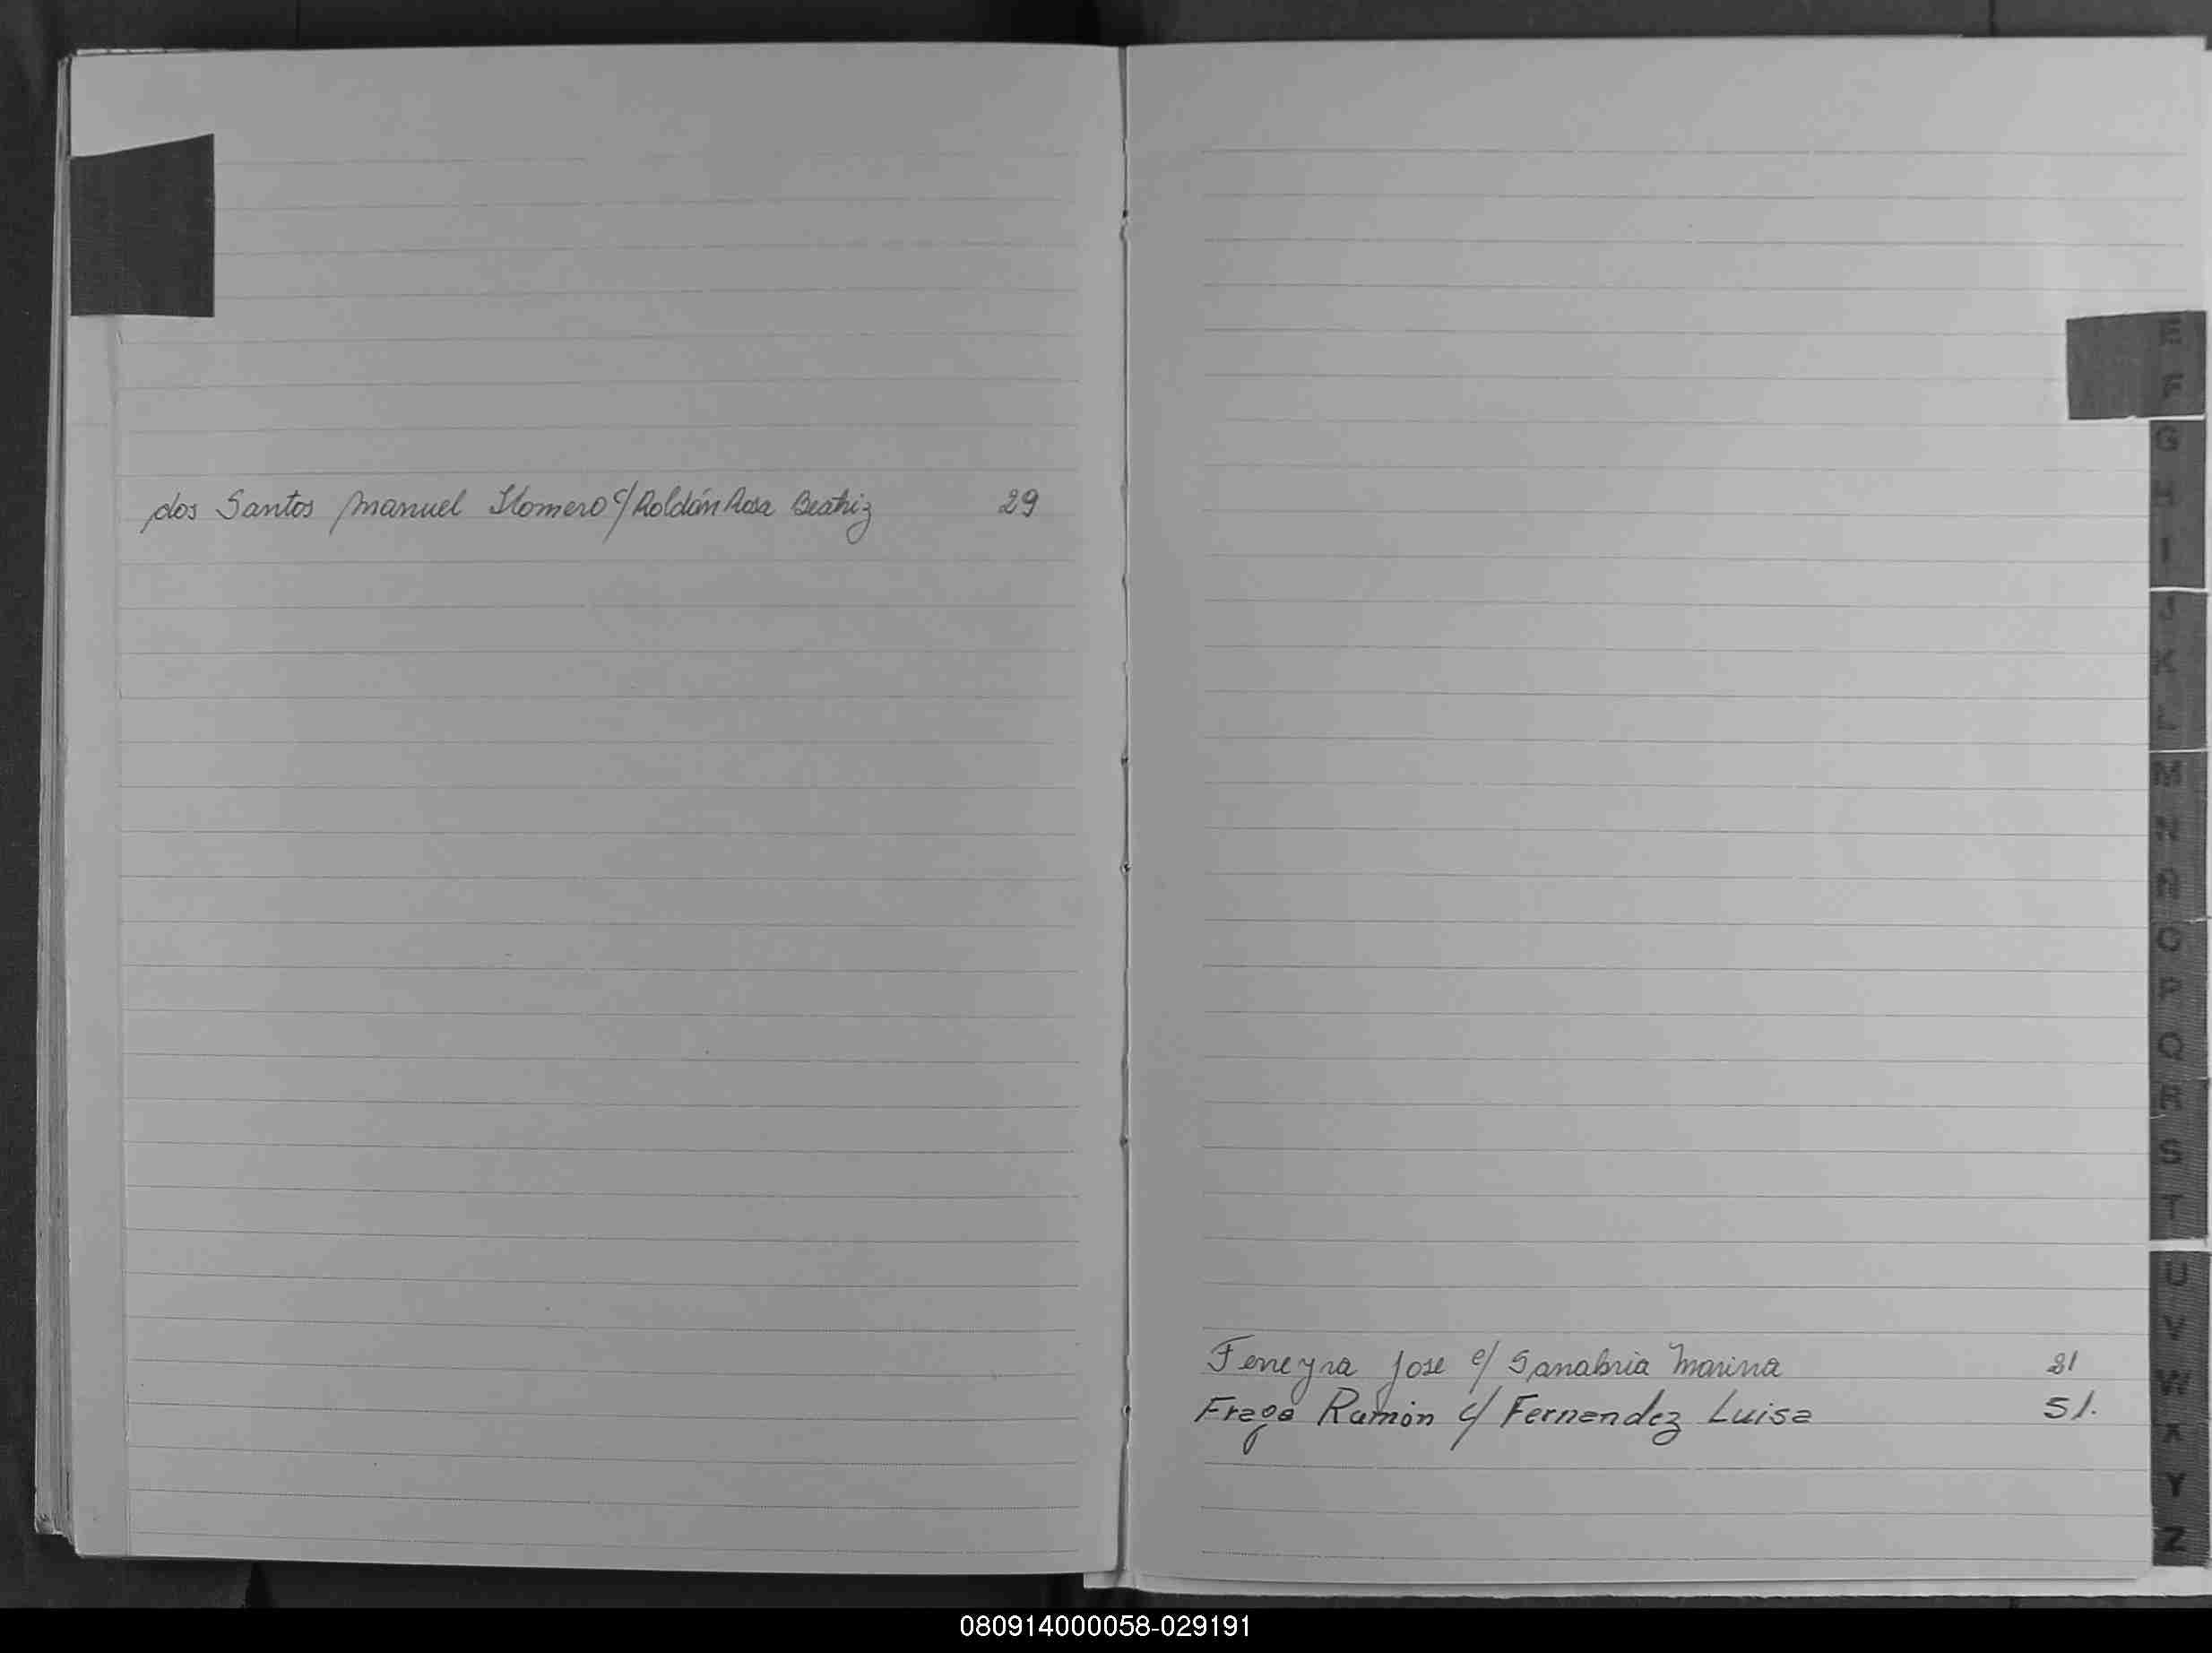 dos Santos Manuel Homero c/ Roldán Rosa Beatriz 29
E
F
G
H
I
J
K
L
M
N
Ñ
O
P
Q
R
S
T
U
V
W
X
Y
Z
Ferreyra Jose c/ Sanabria Marina 21
Fraga Ramón c/ Fernandez Luisa 51.
080914000058-029191